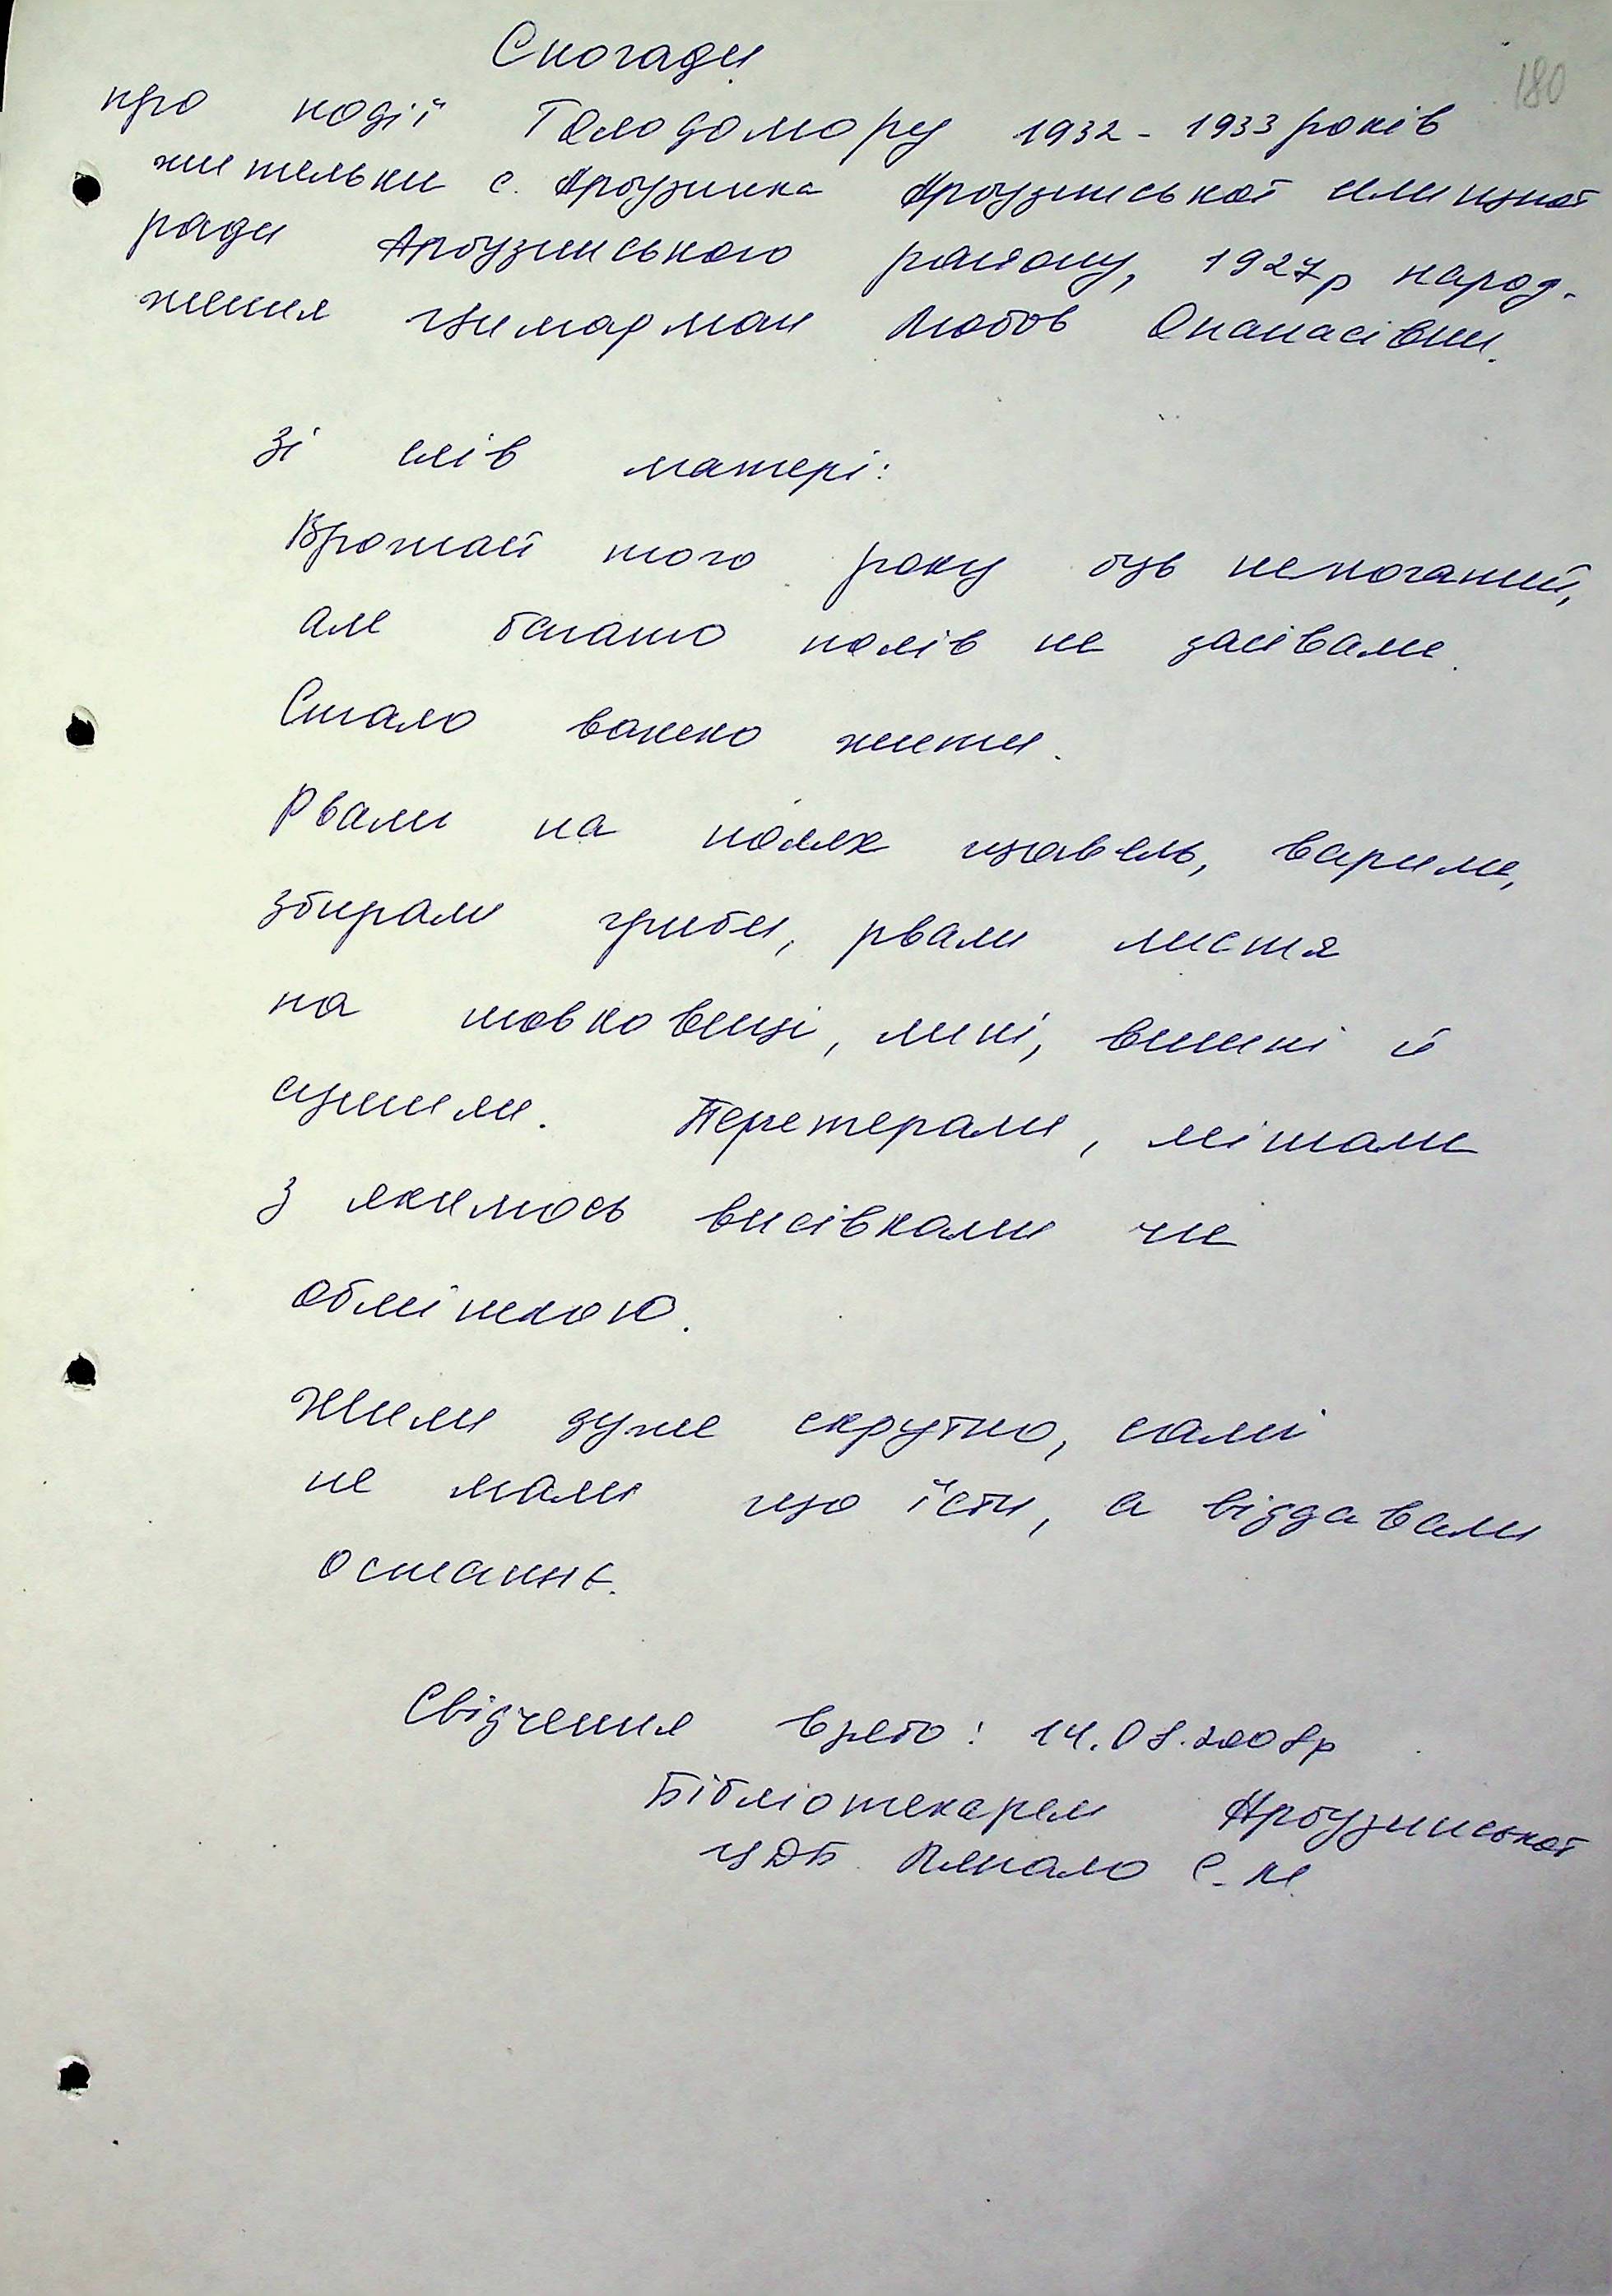 180
Спогади
про події Голодомору 1932 - 1933 років
жительки с. Арбузинка Арбузинської селищної
ради Арбузинського району, 1927р народ-
ження Цимарман Любов Опанасівни.
Зі слів матері:
Врожай того року був непоганий,
але багато полів не засівали.
Стало важко жити.
Рвали на полях щавель, варили,
збирали гриби, рвали листя
на шовковиці, липі, вишні й
сушили. Перетерали, мішали
з якимось висівками чи
обміткою.
Жили дуже скрутно, самі
не мали що їсти, а віддавали
останнє.
Свідчення взято: 14.08.2008р
Бібліотекарем Арбузинської
ЦДБ С. М.